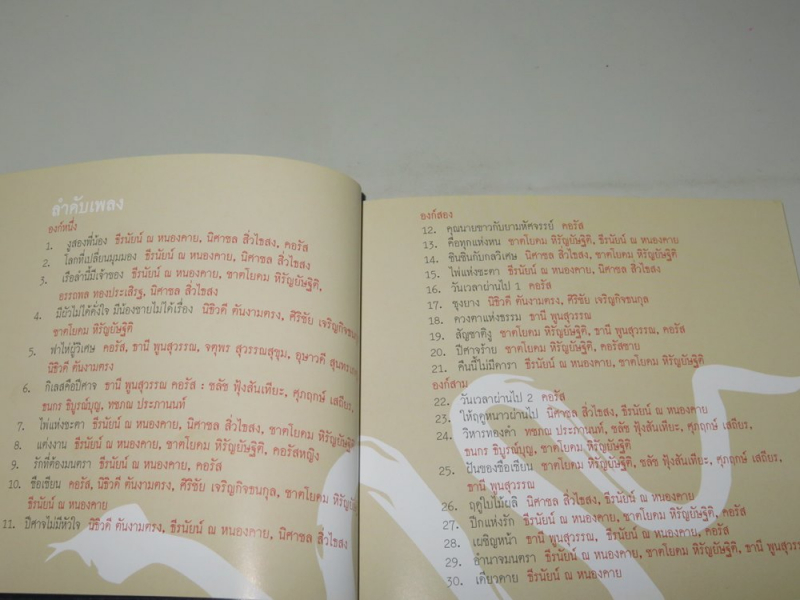 ลำดับเพลง
องก์หนึ่ง
1. งูสองพี่น้อง ธีรนัยน์ ณ หนองคาย, นิศาชล สิ่วไธสง, คอรัส
2. โลกที่เปลี่ยนมุมมอง ธีรนัยน์ ณ หนองคาย, นิศาชล สิ่วไธสง
3. เรือลำนี้มีเจ้าของ ธีรนัยน์ ณ หนองคาย, ชาตโยดม หิรัญยัษฐิติ,
อรรถพล ทองประเสริฐ, นิศาชล สิ่วไธสง
4. มีผัวไม่ได้ดั่งใจ มีน้องชายไม่ได้เรื่อง นิชิวดี ตันงามตรง, ศิริชัย เจริญกิจธนกุล,
ชาตโยดม หิรัญยัษฐิติ
5. ฟาไห่ผู้วิเศษ คอรัส, ธานี พูนสุวรรณ, จตุพร สุวรรณสุขุม, อุษาวดี สุนทร
นิชิวดี ตันงามตรง
6. กิเลสคือปีศาจ ธานี พูนสุวรรณ คอรัส : ชลัช ฟุ้งสันเทียะ, ศุภฤกษ์ เสถียร,
ธนกร ธิบูรณ์บุญ, ทชภณ ประภานนท์
7. ไฟแห่งชะตา ธีรนัยน์ ณ หนองคาย, นิศาชล สิ่วไธสง, ชาตโยดม หิรัญยัษฐิติ
8. แต่งงาน ธีรนัยน์ ณ หนองคาย, ชาตโยดม หิรัญยัษฐิติ, คอรัสหญิง
9. รักที่ต้องมนตรา ธีรนัยน์ ณ หนองคาย, คอรัส
10. ซือเซียน คอรัส, นิชิวดี ตันงามตรง, ศิริชัย เจริญกิจธนกุล, ชาตโยดม หิรัญยัษฐิติ,
ธีรนัยน์ ณ หนองคาย
11. ปีศาจไม่มีหัวใจ นิชิวดี ตันงามตรง, ธีรนัยน์ ณ หนองคาย, นิศาชล สิ่วไธสง
องก์สอง
12. คุณนายขาวกับยามหัศจรรย์ คอรัส
13. คือทุกแห่งหน ชาตโยดม หิรัญยัษฐิติ, ธีรนัยน์ ณ หนองคาย
14. ชินชินกับกลวิเศษ นิศาชล สิ่วไธสง, ชาตโยดม หิรัญยัษฐิติ
15. ไฟแห่งชะตา ธีรนัยน์ ณ หนองคาย, นิศาชล สิ่วไธสง
16. วันเวลาผ่านไป 1 คอรัส
17. ชุงยาง นิชิวดี ตันงามตรง, ศิริชัย เจริญกิจธนกุล
18. ดวงตาแห่งธรรม ธานี พูนสุวรรณ
19. สัญชาติงู ชาตโยดม หิรัญยัษฐิติ, ธานี พูนสุวรรณ, คอรัส
20. ปีศาจร้าย ชาตโยดม หิรัญยัษฐิติ, คอรัสชาย
21. คืนนี้ไม่มีดารา ธีรนัยน์ ณ หนองคาย, ชาตโยดม หิรัญยัษฐิติ
องก์สาม
22. วันเวลาผ่านไป 2 คอรัส
23. ให้ฤดูหนาวผ่านไป นิศาชล สิ่วไธสง, ธีรนัยน์ ณ หนองคาย
24. วิหารทองคำ ทชภณ ประภานนท์, ชลัช ฟุ้งสันเทียะ, ศุภฤกษ์ เสถียร,
ธนกร ธิบูรณ์บุญ, ชาตโยดม หิรัญยัษฐิติ
25. ฝันของซือเซียน ชาตโยดม หิรัญยัษฐิติ, ชลัช ฟุ้งสันเทียะ, ศุภฤกษ์ เสถียร,
ธานี พูนสุวรรณ
26. ฤดูใบไม้ผลิ นิศาชล สิ่วไธสง, ธีรนัยน์ ณ หนองคาย
27. ปีกแห่งรัก ธีรนัยน์ ณ หนองคาย, ชาตโยดม หิรัญยัษฐิติ, คอรัส
28. เผชิญหน้า ธานี พูนสุวรรณ, ธีรนัยน์ ณ หนองคาย
29. อำนาจมนตรา ธีรนัยน์ ณ หนองคาย, ชาตโยดม หิรัญยัษฐิติ, ธานี พูนสุวรรณ
30. เดียวดาย ธีรนัยน์ ณ หนองคาย